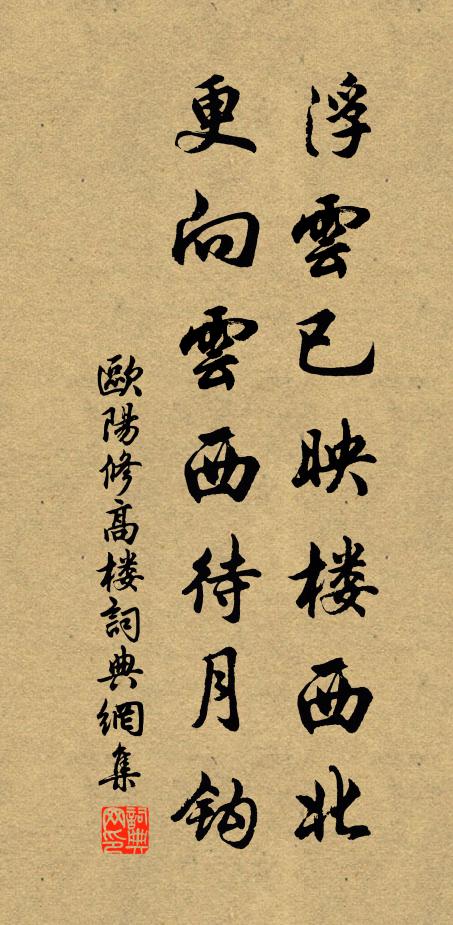 浮雲已映楼西北
更向雲西待月鈎
歐陽修高楼詞典網集
詞典网印